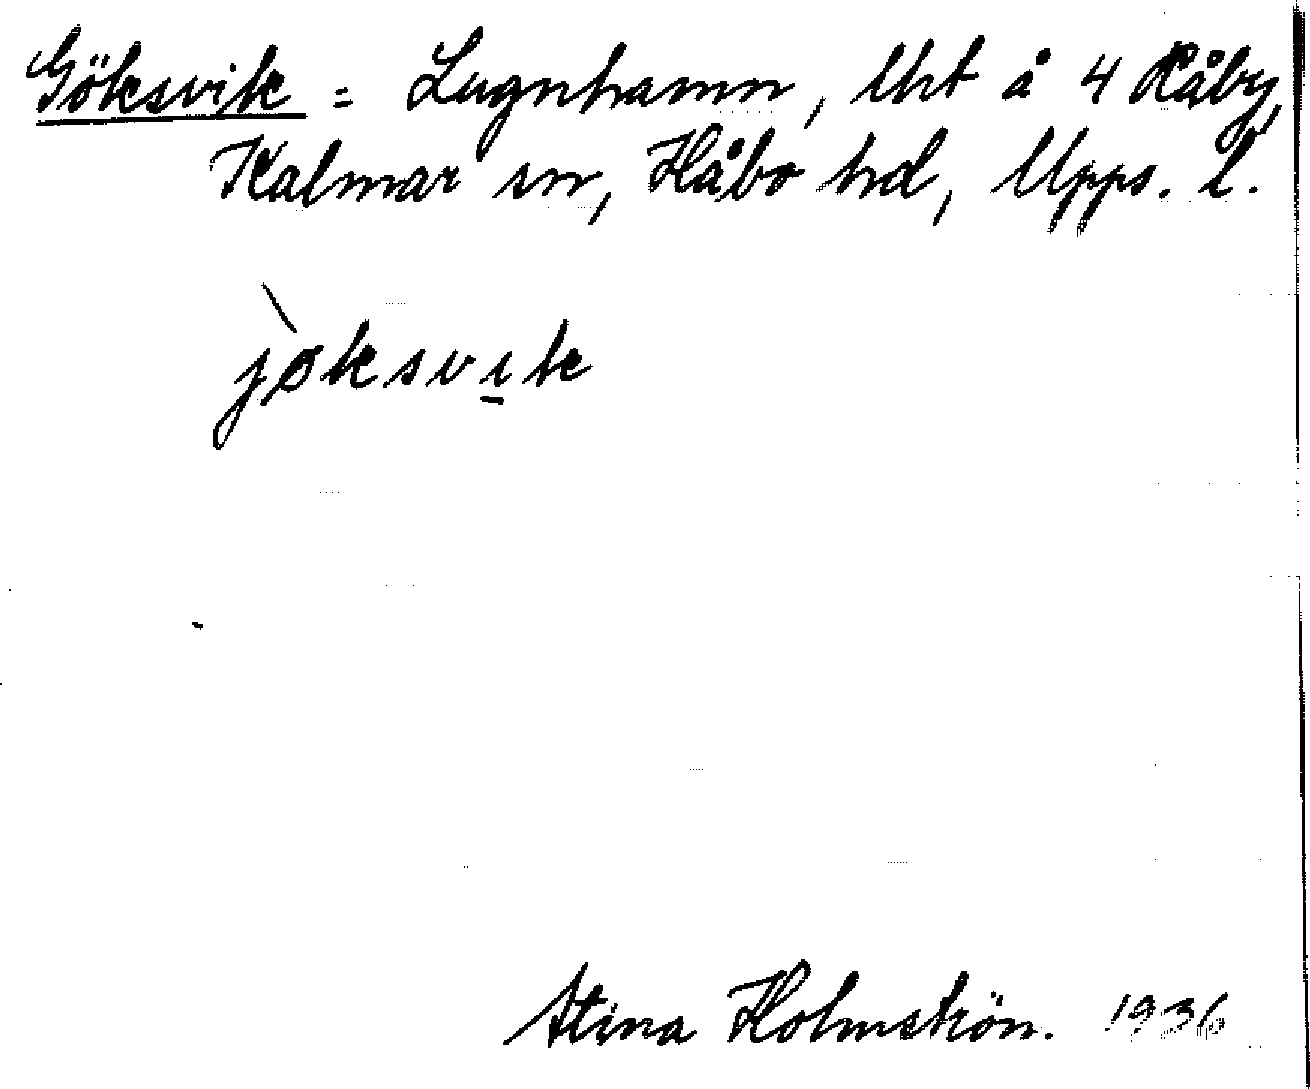 Göksvik = Lugnhamn, Uht å 4 Råby,
Kalmar sn, Håbo hd, Upps. l.
jøksvik
Stina Holmström. 1936